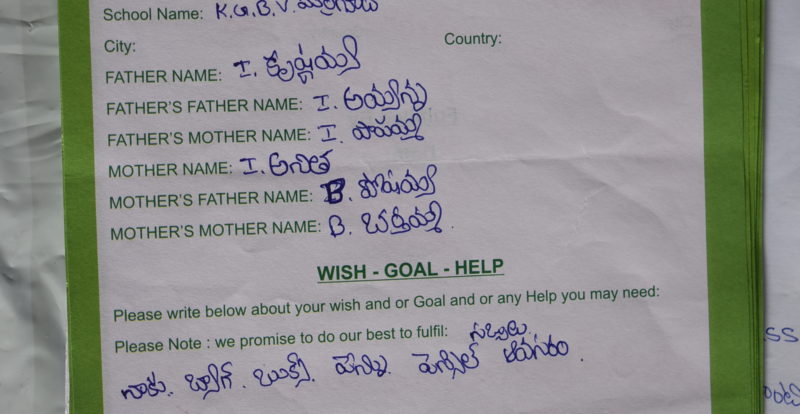 School Name: K.G.B.V.
City: Country:
FATHER NAME: I. కృష్ణయ్య
FATHER'S FATHER NAME: I. అయ్యన్న
FATHER'S MOTHER NAME: I. పాపమ్మ
MOTHER NAME: I. అనిత
MOTHER'S FATHER NAME: B. పోషయ్య
MOTHER'S MOTHER NAME: B.
WISH - GOAL - HELP
Please write below about your wish and or Goal and or any Help you may need:
Please Note : we promise to do our best to fulfil: సబ్బులు.
నాకు. బ్యాగ్. బుక్స్. పెన్ను. పెన్సిల్ అవసరం.
ss